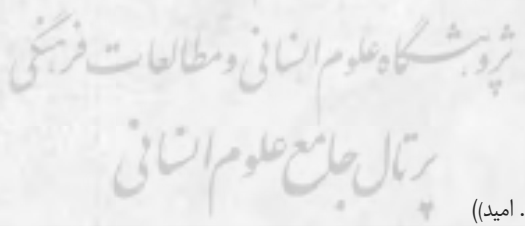 پژوهشگاه علوم انسانی و مطالعات فرهنگی
پرتال جامع علوم انسانی
. امید))